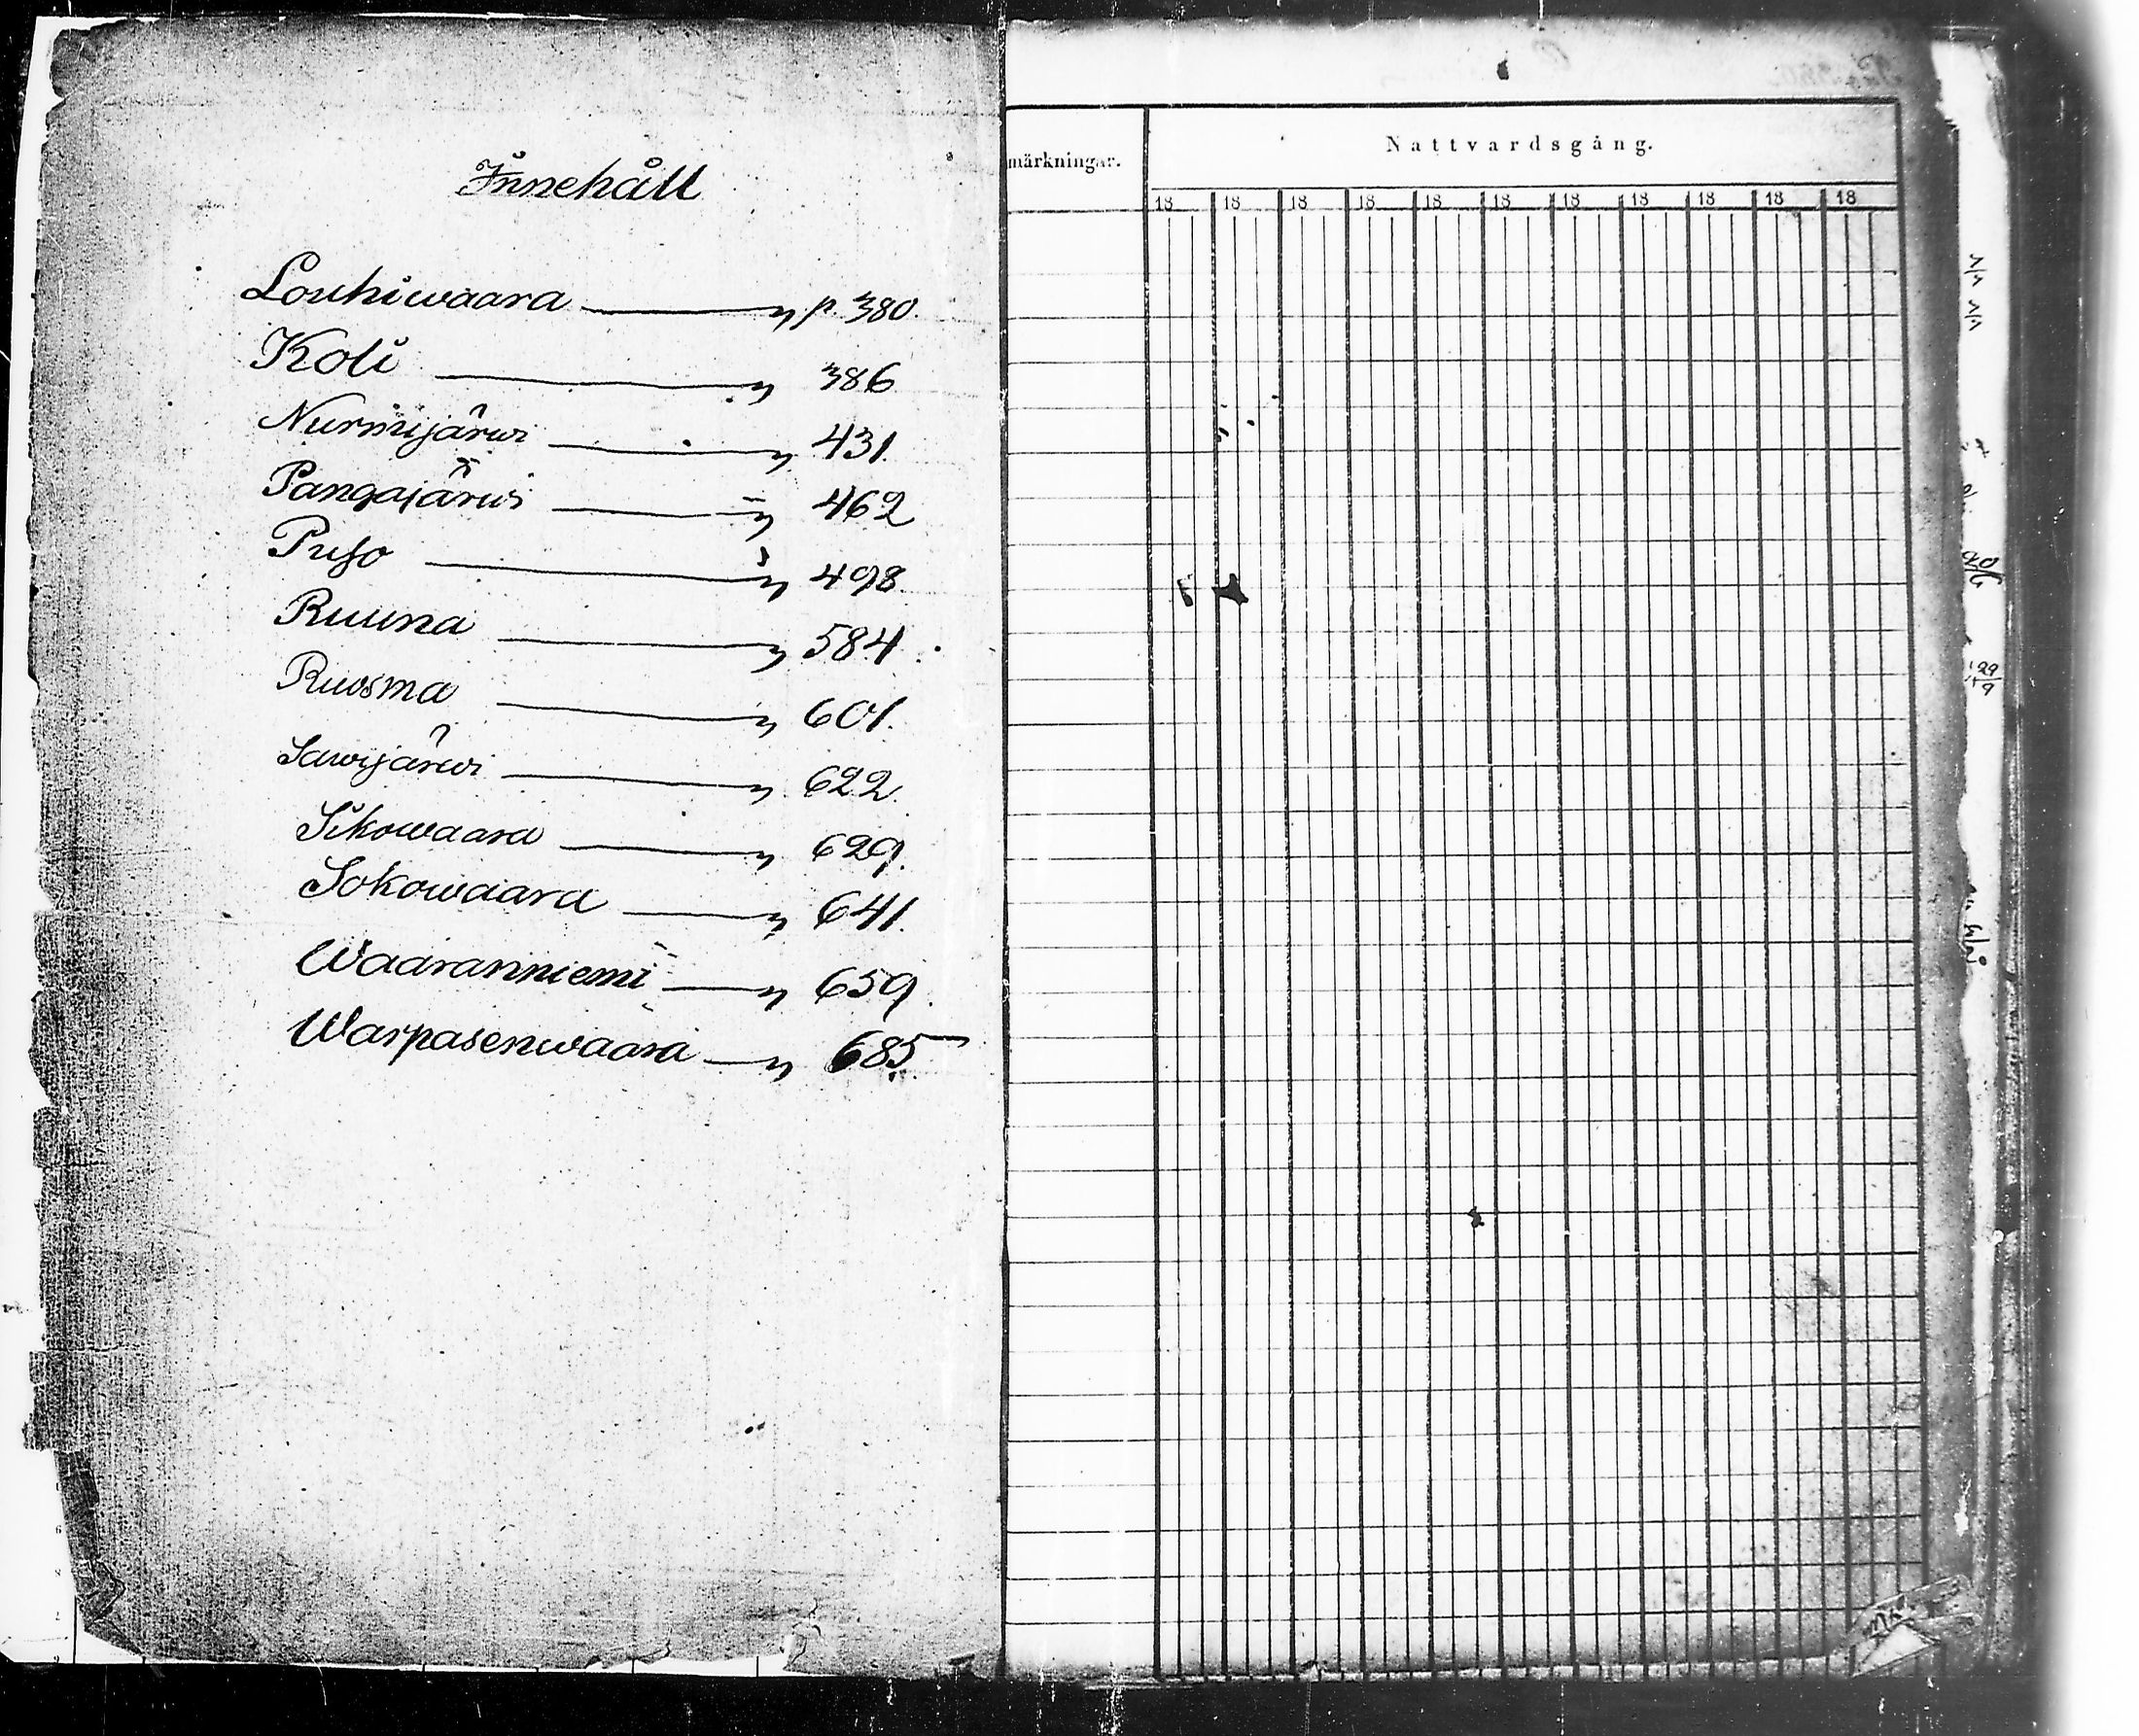 Innehåll
Louhiwaara p. 380.
Koli 386
Nurmijärwi 431.
Pangajärwi 462
Puso 498.
Ruuna 584.
Ruosma 601.
Sawijärwi 622.
Sikowaara 629.
Sokowaara 641.
Waaranniemi 659.
Warpasenwaara 685
märkningar.
Nattvardsgång.
18 18 18 18 18 18 18 18 18 18 18